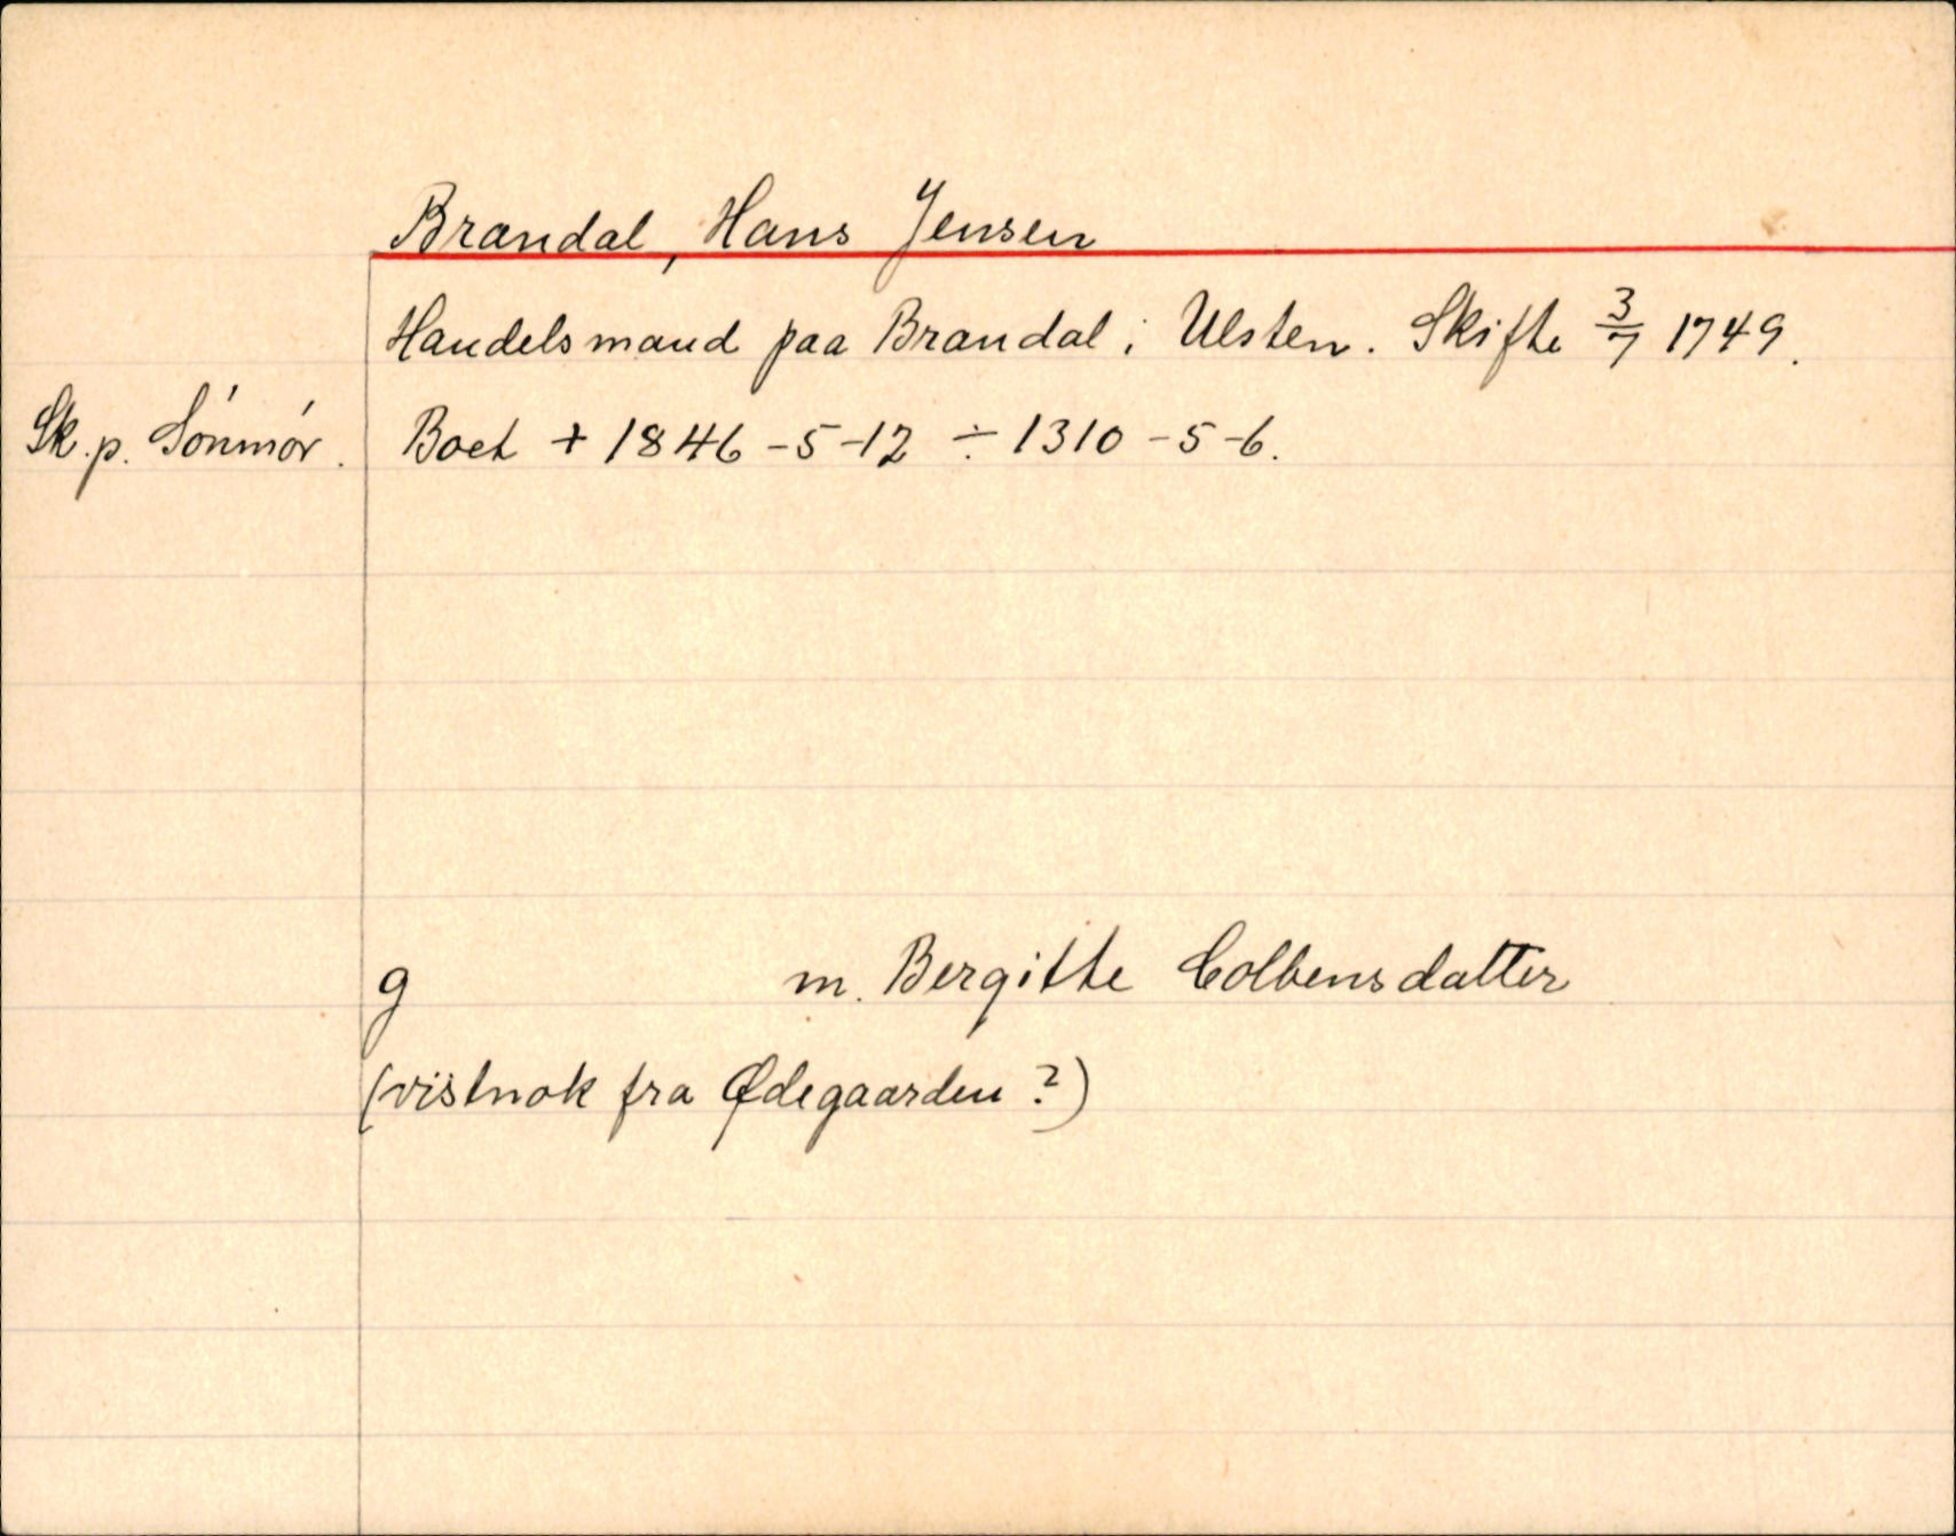 Brandal, Hans Jensen
Handelsmand paa Brandal i Ulsten. Skifte 3/7 1749.
Sk. p. Sónmór. Boet + 1846-5-12 ÷ 1310-5-6.
g m. Bergitte Colbensdatter
(vistnok fra Ødegaarden?)